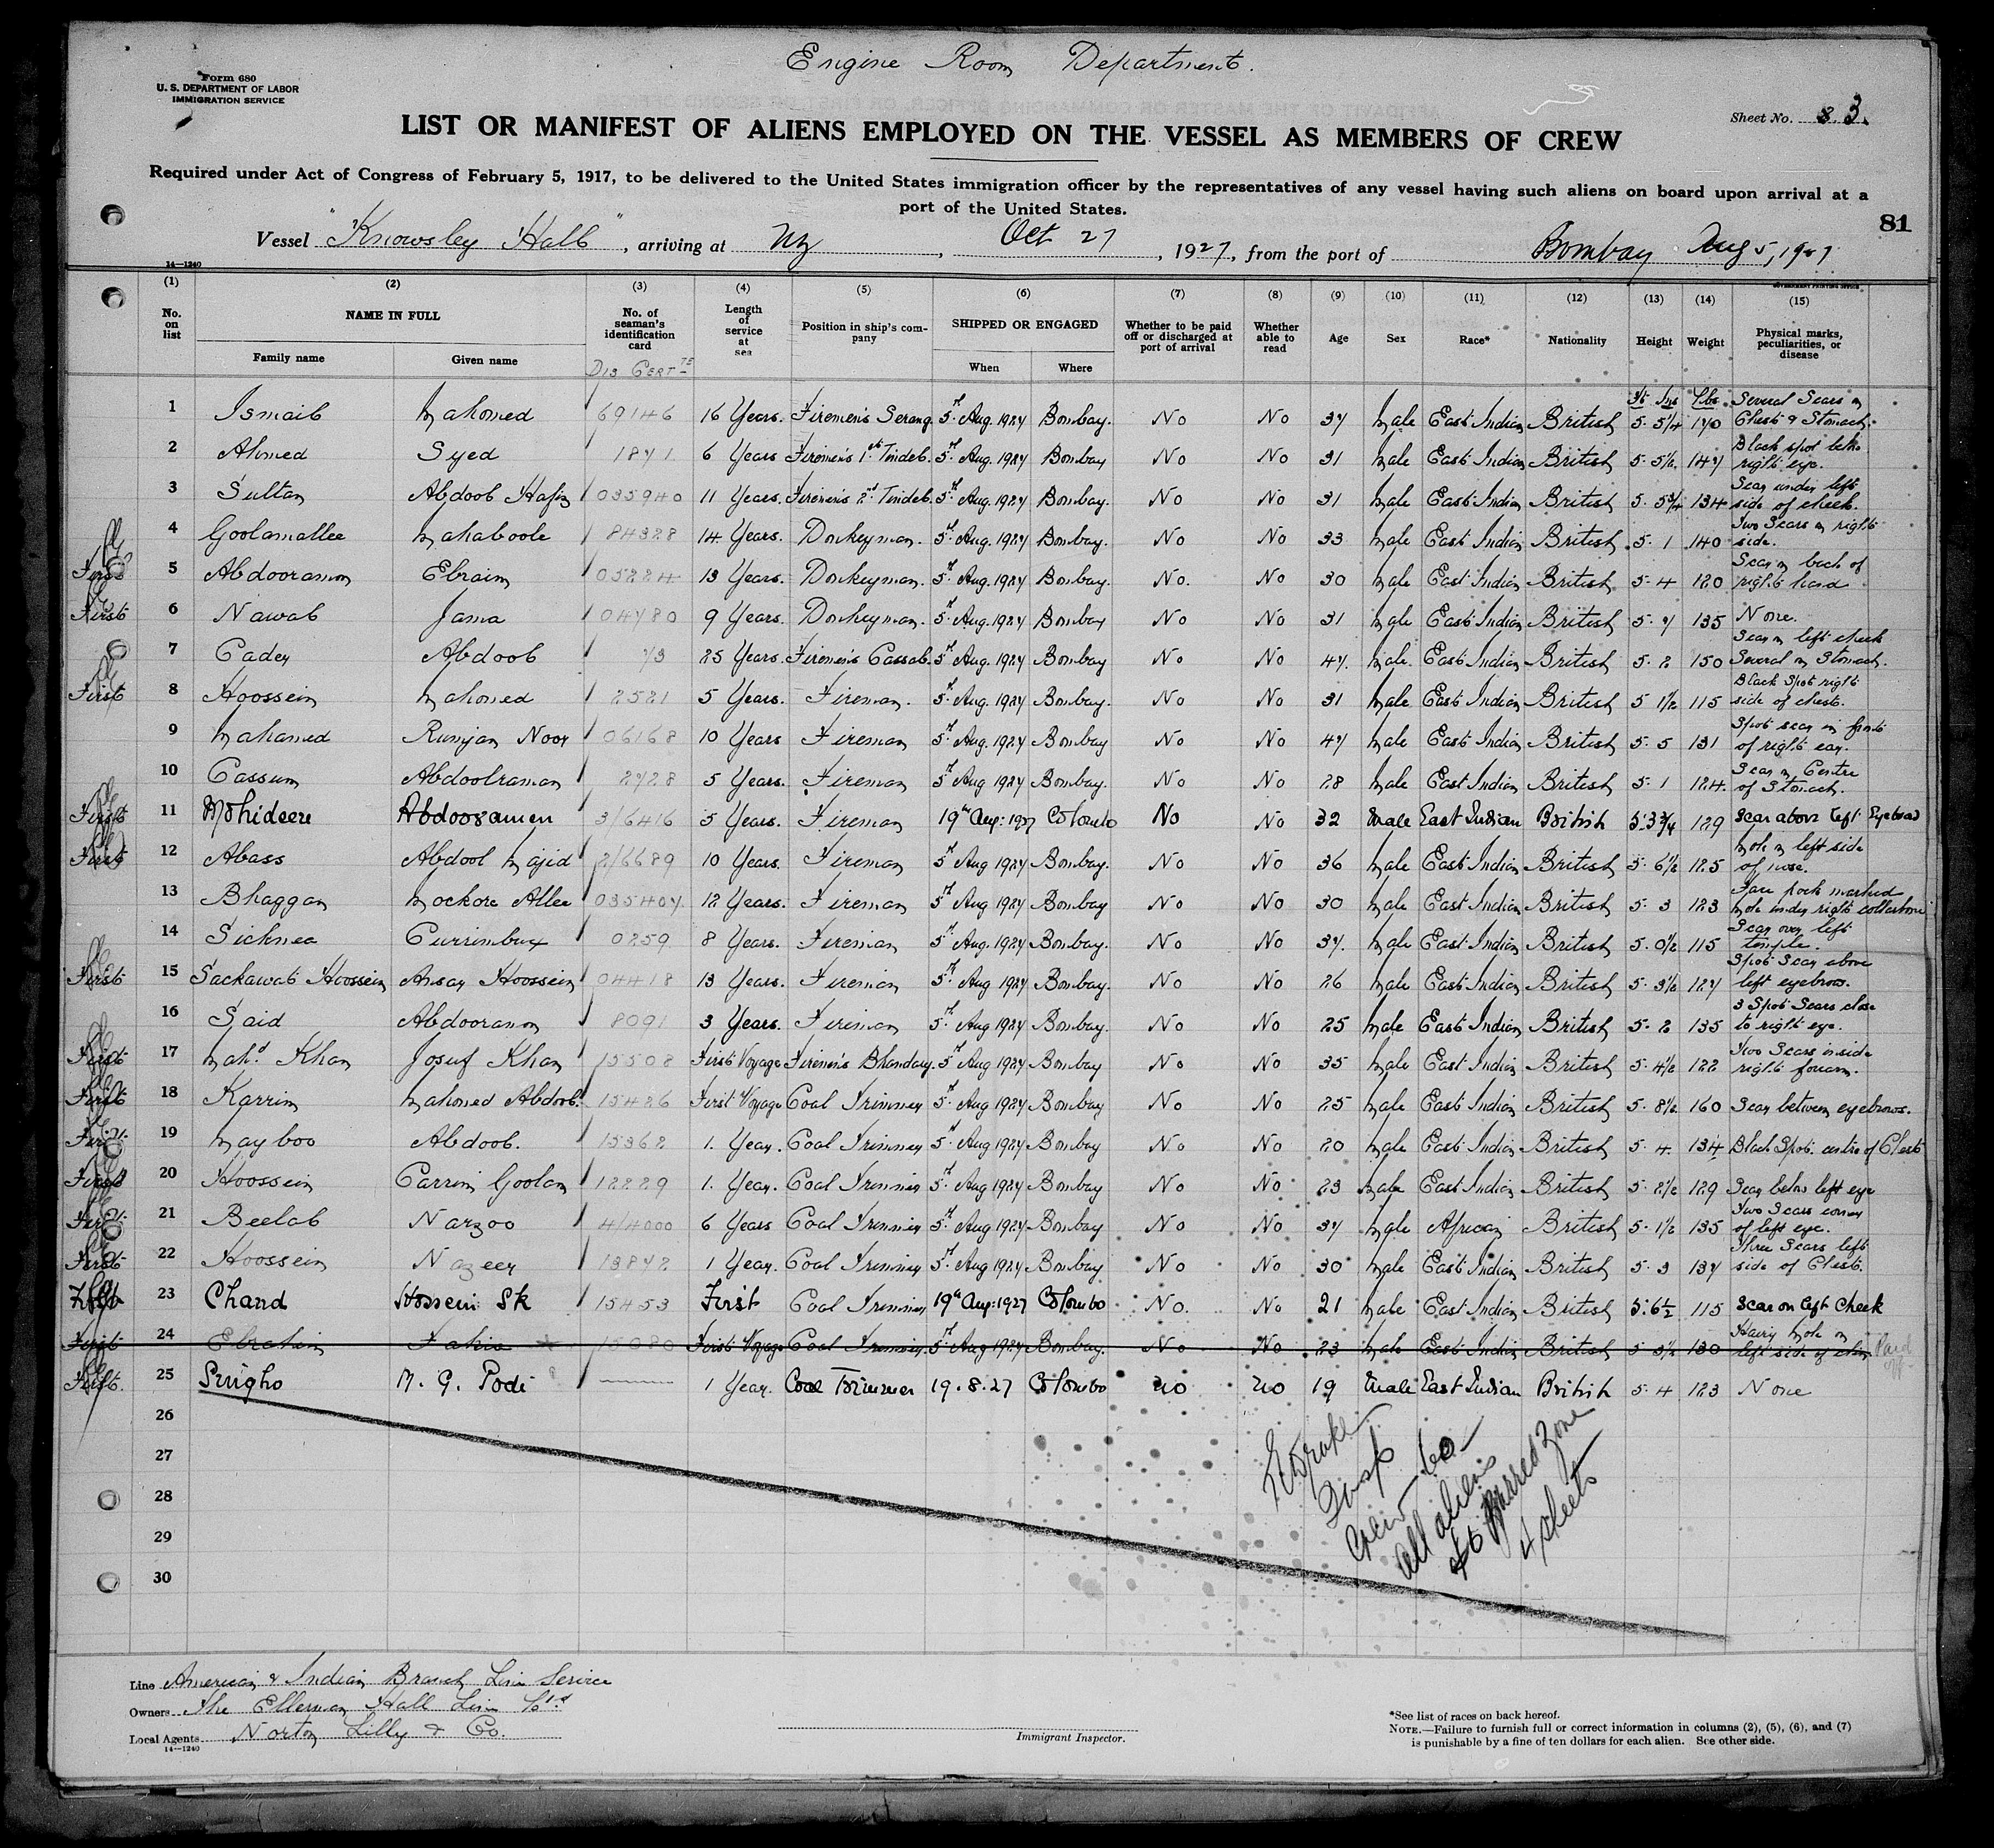 Engine Room Department.
Form 680
U. S. DEPARTMENT OF LABOR
IMMIGRATION SERVICE
Sheet No. 3.
LIST OR MANIFEST OF ALIENS EMPLOYED ON THE VESSEL AS MEMBERS OF CREW
Required under Act of Congress of February 5, 1917, to be delivered to the United States immigration officer by the representatives of any vessel having such aliens on board upon arrival at a
port of the United States.
81
Vessel "Knowsley Hall", arriving at NY, Oct 27, 1927, from the port of Bombay Aug 5, 1927
14—1240
GOVERNMENT PRINTING OFFICE
(1) (2) (3) (4) (5) (6) (7) (8) (9) (10) (11) (12) (13) (14) (15)
No. on list NAME IN FULL No. of seaman's identification card Length of service at sea Position in ship's company SHIPPED OR ENGAGED Whether to be paid off or discharged at port of arrival Whether able to read Age Sex Race* Nationality Height Weight Physical marks, peculiarities, or disease
Family name Given name Dis Certte When Where
Ft Ins Lbs
1 Ismail Mahomed 69146 16 Years. Firemen's Serang 5th Aug. 1927 Bombay. No No 37 Male East Indian British 5. 5 1/4 170 Several Scars on Chest & Stomach.
2 Ahmed Syed 1871 6 Years Firemen's 1st Tindel. 5th Aug. 1927 Bombay No No 31 Male East Indian British 5. 5 1/2 147 Black spot below right eye.
3 Sultan Abdool Hafiz 035940 11 Years. Firemen's 2nd Tindel. 5th Aug. 1927 Bombay. No No 31 Male East Indian British 5. 5 3/4 134 Scar under left side of cheek.
4 Goolamallee Mahaboole 84328 14 Years. Donkeyman. 5th Aug. 1927 Bombay. No No 33 Male East Indian British 5. 1 140 Two Scars on right side.
First 5 Abdooramon Ebraim 05224 13 Years. Donkeyman. 5th Aug. 1927 Bombay. No. No 30 Male East Indian British 5. 4 120 Scar on back of right hand
First 6 Nawab Jama 04780 9 Years. Donkeyman. 5th Aug. 1927 Bombay No No 31 Male East Indian British 5. 7 135 None.
7 Cader Abdool 73 25 Years. Firemen's Cassab. 5th Aug. 1927 Bombay No No 47. Male. East Indian British 5. 2 150 Scar on left cheek Several on Stomach.
First 8 Hoossein Mahomed 2521 5 Years. Fireman. 5th Aug. 1927 Bombay. No No 31 Male East Indian British 5 1 1/2 115 Black Spot right side of chest.
9 Mahamed Rumjan Noor 06168 10 Years Fireman 5th Aug. 1927 Bombay No No 47 Male East Indian British 5. 5 131 Spot scar in front of right ear.
10 Cassum Abdoolraman 2728 5 Years. Fireman 5th Aug 1927 Bombay. No No 28 Male East Indian British 5. 1 124. Scar in Centre of Stomach.
First 11 Mohideen Abdooramen 3/6416 5 Years. Fireman 19th Aug: 1927 Colombo No No 32 Male East Indian British 5. 3 3/4 129 Scar above left Eyebrow
First 12 Abass Abdool Majid 2/6689 10 Years. Fireman 5th Aug 1927 Bombay. No No 36 Male East Indian British 5. 6 1/2 125 Mole on left side of nose.
13 Bhaggan Mockore Allee 035407. 12 Years. Fireman 5th Aug 1927 Bombay No No 30 Male East Indian British 5. 3 123 Face pock marked Mole under right collarbone
14 Currimbux 0259 8 Years. Fireman 5th Aug. 1927 Bombay. No No 37. Male East Indian British 5. 0 1/2 115 Scar over left temple.
First 15 Sackawat Hoossein Ansar Hoossein 04418 13 Years. Fireman 5th Aug 1927 Bombay. No No 26 Male East Indian British 5. 3 1/2 127 Spot Scar above left eyebrow.
16 Said Abdooramon 8091 3 Years. Fireman 5th Aug 1927 Bombay. No No 25 Male East Indian British 5. 2 135 3 Spot Scars close to right eye.
First 17 Mahd Khan Josuf Khan 15508 First Voyage Firemen's Bhandary. 5th Aug 1927 Bombay No No 35 Male East Indian British 5. 4 1/2 122 Two Scars inside right forearm.
First 18 Karrim Mahomed Abdool. 15426 First Voyage Coal Trimmer 5th Aug 1927 Bombay No No 25 Male East Indian British 5. 8 1/2 160 Scar between eyebrows.
First 19 Mayboo Abdool. 15362 1. Year. Coal Trimmer 5th Aug 1927 Bombay. No No 20 Male East Indian British 5. 4. 134 Black Spot centre of Chest
First 20 Hoossein Carrim Goolam 12229 1. Year. Coal Trimmer 5th Aug 1927 Bombay No No 23 Male East Indian British 5. 2 1/2 129 Scar below left eye
First 21 Beelal Narzoo 4/4000 6 Years Coal Trimmer 5th Aug 1927 Bombay No No 37 Male African British 5. 1 1/2 135 Two Scars corner of left eye.
First 22 Hoossein Nazeer 13872 1 Year. Coal Trimmer 5th Aug 1927 Bombay No No 30 Male East Indian British 5. 3 137 Three Scars left side of Chest.
First 23 Chand Hossein Sk 15453 First Coal Trimmer 19th Aug: 1927 Colombo No. No 21 Male East Indian British 5. 6 1/2 115 Scar on left cheek
First 24 Ebrahim Fakir 15080 First Voyage Coal Trimmer. 5th Aug 1927 Bombay. No No 23 Male East Indian British 5. 3 1/2 130 Hairy Mole on left side of chin Paid off
First. 25 Singho M. G. Podi 1 Year. Coal Trimmer 19. 8. 27 Colombo no no 19 Male East Indian British 5. 4 123 None
26
27
28
29
30
Insp
Crew 60
all aliens
46 Barred Zone
4 sheets
Line American & Indian Branch Line Service
Owners The Ellerman Hall Line Ltd
Local Agents Norton Lilly & Co.
14—1240
Immigrant Inspector.
*See list of races on back hereof.
NOTE.—Failure to furnish full or correct information in columns (2), (5), (6), and (7)
is punishable by a fine of ten dollars for each alien. See other side.